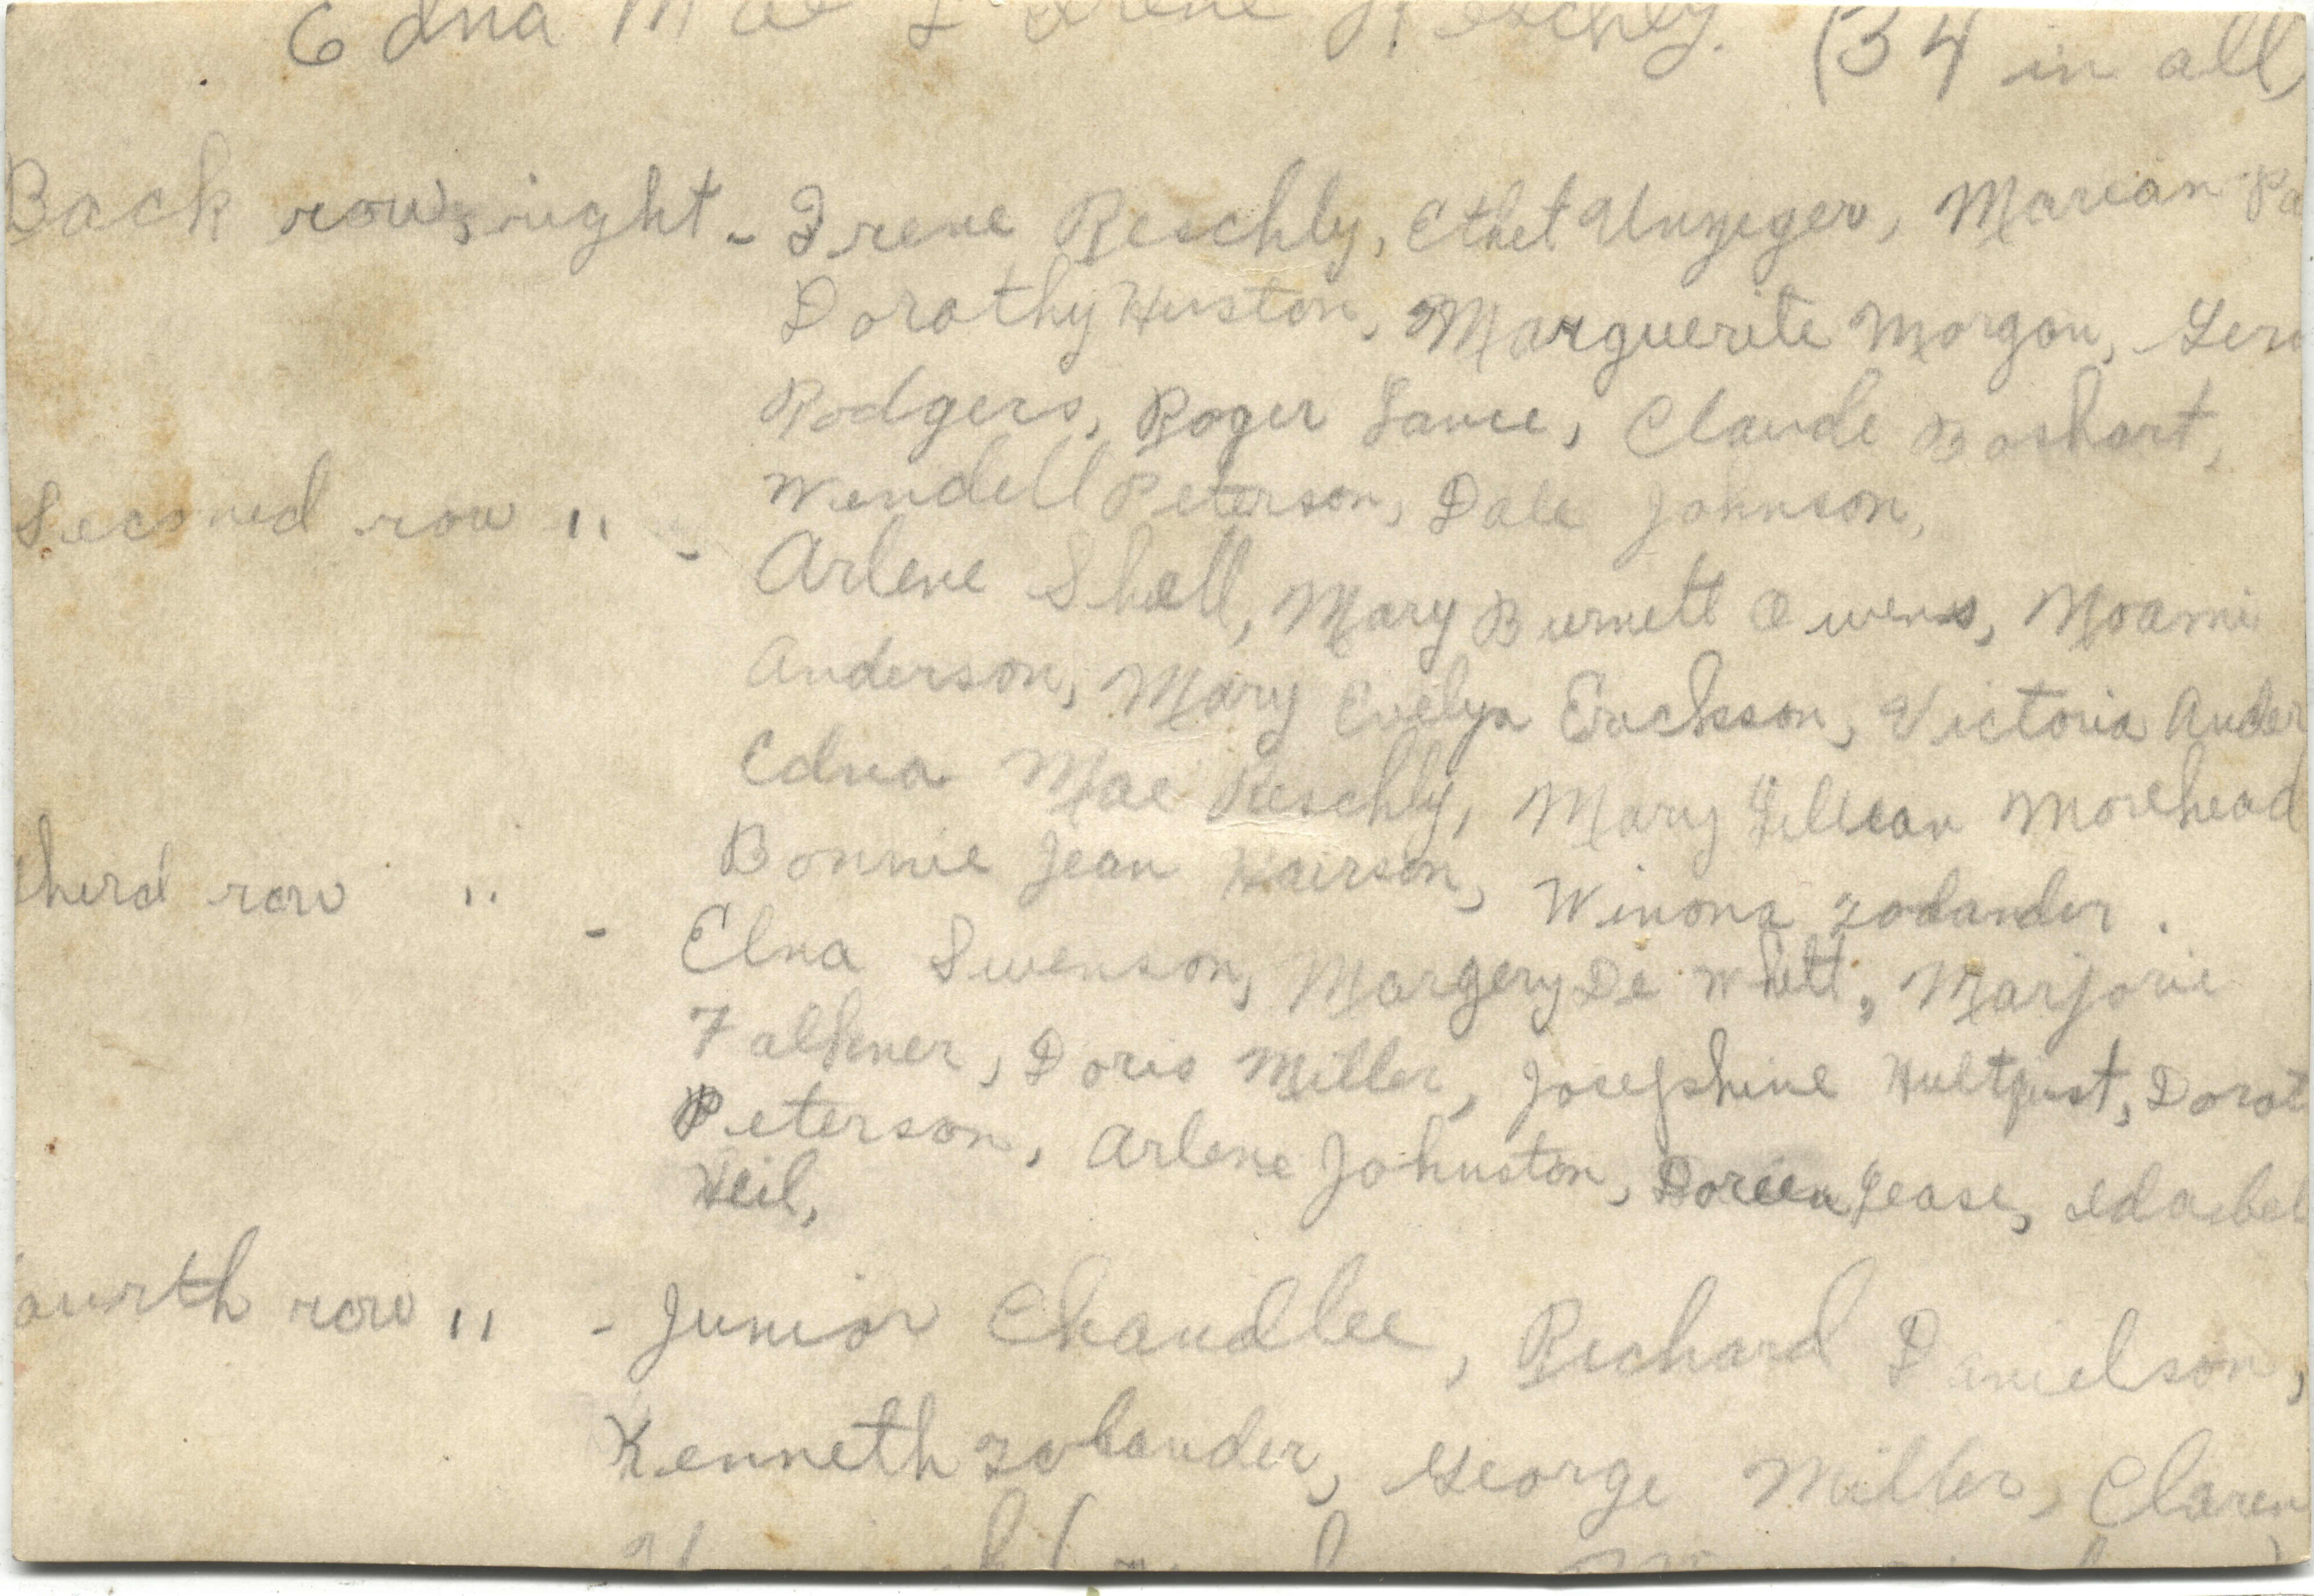 Edna Mae & Irene Reschly. (34 in all)
Back row, right - Irene Reschly, Ethel Unzeger, Marian Pa
Dorothy Huston, Marguerite Morgan, Lero
Rodgers, Roger Lance, Claude Boshart,
Wendell Peterson, Dale Johnson,
Second row " -
Arlene Shell, Mary Burnett Owens, Noami
Anderson, Mary Evelyn Erickson, Victoria Ander
Edna Mae Reschly, Mary Lillian Morehead
Bonnie Jean , Winona Zolander.
third row " -
Elna Swenson, Margery De Whitt, Marjorie
Falkner, Doris Miller, Josephine Hultquist, Dorot
Peterson, Arlene Johnston, Doreen Lease, Idabel
Weil,
ourth row " - Junior Chandlee, Richard Danielson,
Kenneth Zolander, George Miller, Claren